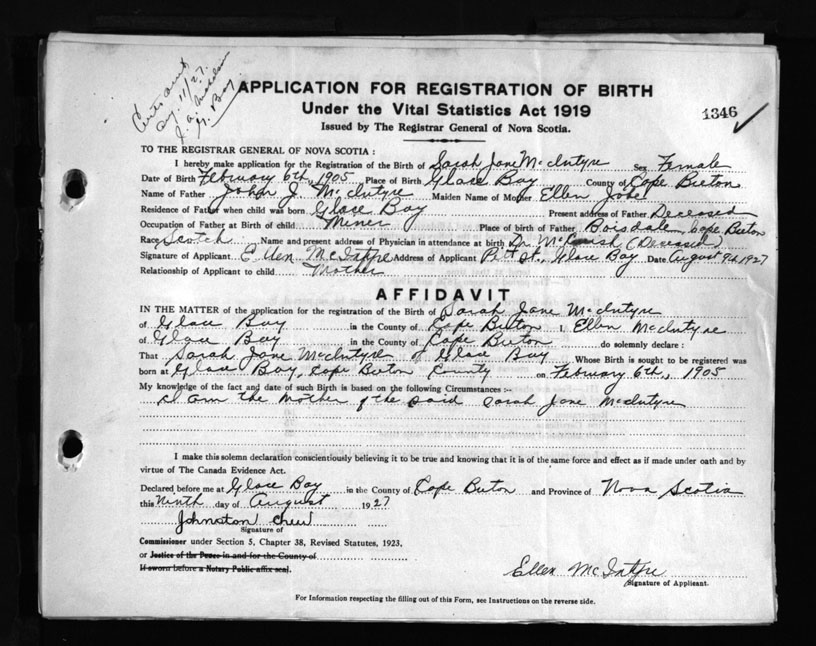 APPLICATION FOR REGISTRATION OF BIRTH
Under the Vital Statistics Act 1919
Issued by The Registrar General of Nova Scotia.
1346
TO THE REGISTRAR GENERAL OF NOVA SCOTIA :
I hereby make application for the Registration of the Birth of Sarah Jane McIntyre Sex Female
Date of Birth February 6th, 1905 Place of Birth Glace Bay County of Cape Breton
Name of Father John J. McIntyre Maiden Name of Mother Ellen
Residence of Father when child was born Glace Bay Present address of Father Deceased
Occupation of Father at Birth of child Miner Place of birth of Father Boisdale, Cape Breton
Race Scotch Name and present address of Physician in attendance at birth Dr. (Deceased)
Signature of Applicant Ellen McIntyre Address of Applicant Pitt St., Glace Bay Date August 9th 1927
Relationship of Applicant to child Mother
AFFIDAVIT
IN THE MATTER of the application for the registration of the Birth of Sarah Jane McIntyre
of Glace Bay in the County of Cape Breton I, Ellen McIntyre
of Glace Bay in the County of Cape Breton do solemnly declare :
That Sarah Jane McIntyre of Glace Bay Whose Birth is sought to be registered was
born at Glace Bay, Cape Breton County on February 6th, 1905
My knowledge of the fact and date of such Birth is based on the following Circumstances :-
I am the Mother of the said Sarah Jane McIntyre
I make this solemn declaration conscientiously believing it to be true and knowing that it is of the same force and effect as if made under oath and by
virtue of The Canada Evidence Act.
Declared before me at Glace Bay in the County of Cape Breton and Province of Nova Scotia
this Ninth day of August 1927
Johnston
Signature of
Commissioner under Section 5, Chapter 38, Revised Statutes, 1923,
or Justice of the Peace in and for the County of
If sworn before a Notary Public affix seal.
Ellen McIntyre
Signature of Applicant.
For Information respecting the filling out of this Form, see Instructions on the reverse side.